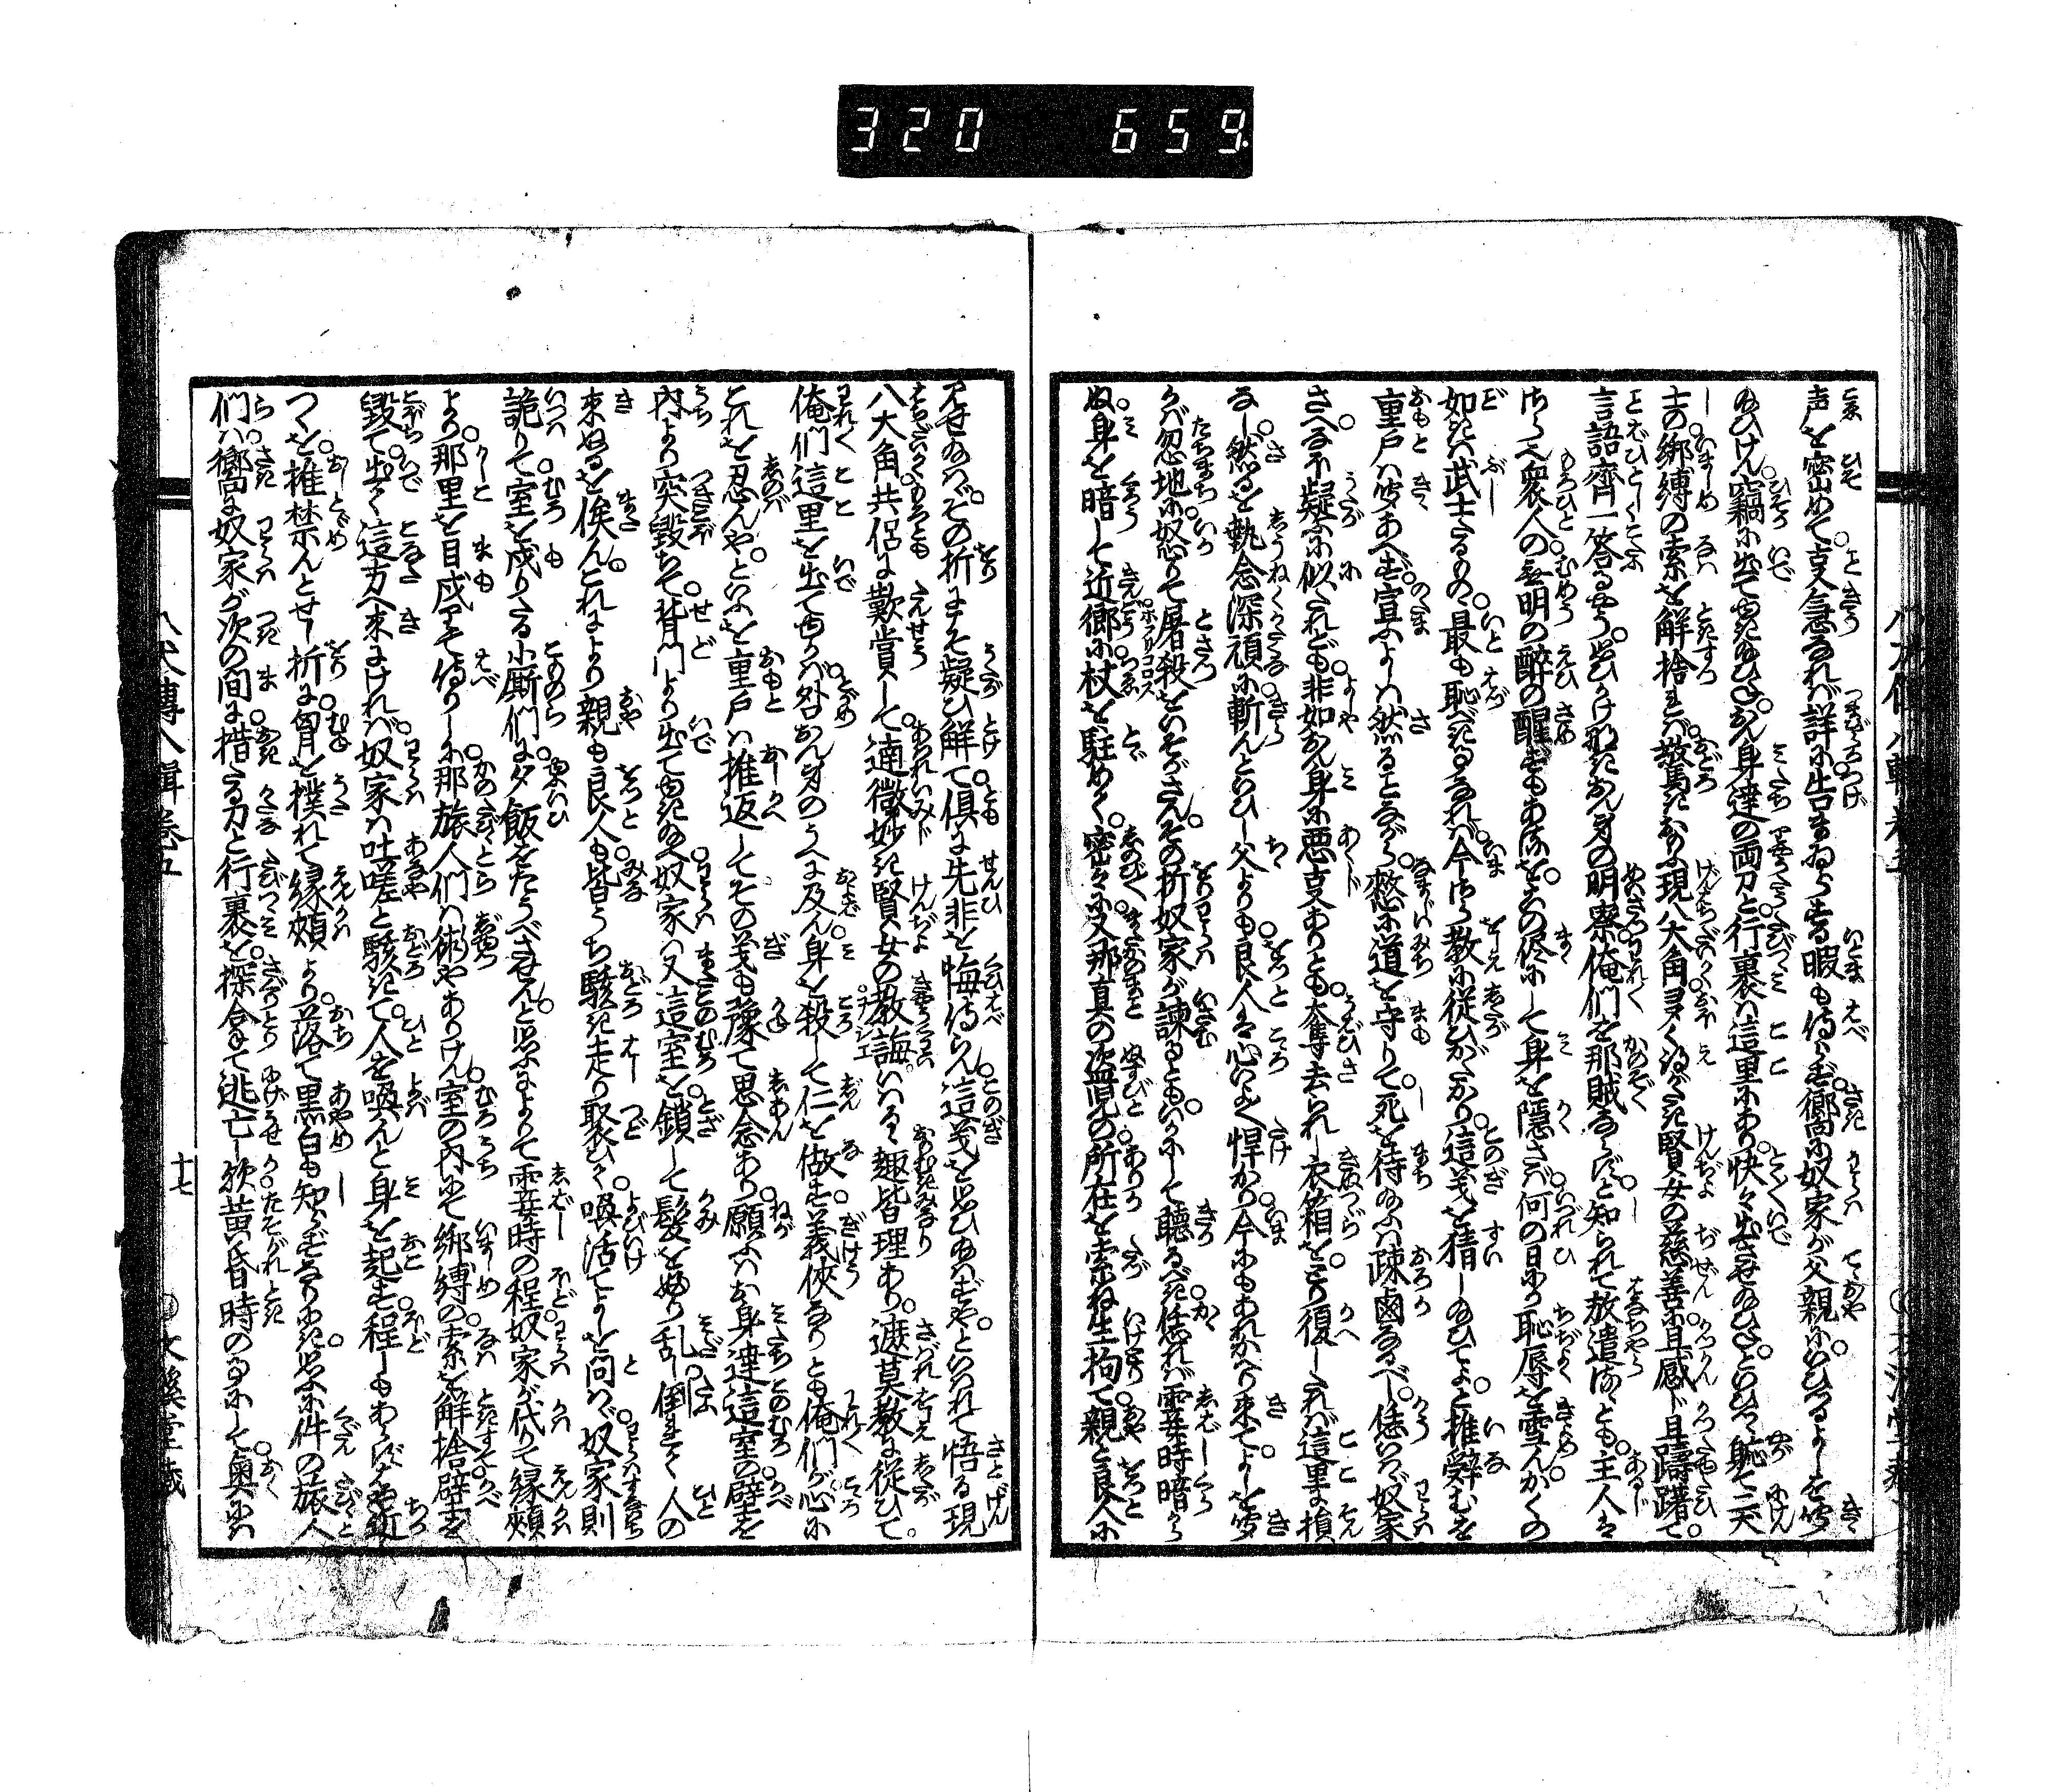 320 659
声を密めて。事急なれば詳に告まゐらする暇も侍らず。嚮に奴家が父親にいひつるよしを聞
給ひけん。竊に出て走給ひね。おん身達の両刀と行裹は這里にあり。快々出させ給ひね。といひつゝ軈て二犬
士の綁縛の索を解捨れば。驚きながら現八大角。これ得がたき賢女の慈善に且感じ且躊躇て。
言語齊一答るやう。思ひかけなきおん身の明察。俺們を那賊ならずと知られて放遣るゝとも。主人は
さら也衆人の無明の酔の醒ずもあるを。この侭にして身を隠さば。何の日にか恥辱を雪ん。かくの
如きは武士たるもの。最も恥べきわざなれば。今さら教に従ひがたかり。這義を猜し給ひてよ。と推辞むを
重戸は聞あへず。宣ふよしは然ることながら。憖に道を守りて。死を待給ふは疎鹵なるべし。恁いはゞ奴家
さへなほ疑ふに似たれども。非如おん身に悪事ありとも。奪去られし衣箱を。とり復したれば這里に損
なし。然るを執念深く頑に斬んといひし父よりも。良人は心いよゝ悍かり。今にもあれかへり来て。よしを聞
かば忽地に。怒りて屠殺をいそがさん。その折奴家が諫るとも。いかにして聴るべき。恁れば霎時暗から
ぬ。身を暗して近郷に杖を駐めて。密々に又那真の盗児の所在を索ね生拘て。親と良人に
見せ給はゞ。その折にこそ疑ひ解て。倶に先非を悔侍らん。這義を思ひ給はずや。といはれて悟る現
八大角。共侶に歎賞して。遖微妙き賢女の教誨。いはるゝ趣皆理あり。遮莫教に従ひて。
俺們這里を出て走らば。咎おん身のうへに及ん。身を殺して仁を做す。義侠なりとも俺們が心に
これを忍んや。といふを重戸は推返して。その義も豫て思念あり。願ふはおん身達這室の壁を
内より突毀ちて。背門より出て走給へ。奴家は又這室を鎖して。髪をふり乱し倒れて。人の
来ぬるを俟ん。これにより親も良人も。皆うち駭き走り聚ひて。喚活てよしを問はゞ。奴家則
詭りて。室を戍りたる小厮們に。夕飯をたうべさせんと。思ふによりて霎時の程。奴家が代りて縁頬
より。那里を目戍りて侍りしに。那旅人們は術やありけん。室の内にて綁縛の。索を解捨壁を
毀て。出て這方へ来にければ。奴家は吐嗟と駭きて。人を喚んと身を起す。程しもあらず走り近
つくを。推禁んとせし折に。胸を撲れて縁頬より。落て黒白も知らずなりにき。思ふに件の旅人
們は。嚮に奴家が次の間に措たる刀と行裹を。探合て逃亡し欤。黄昏時の事にして。奥には
八犬傳八輯巻五
十七
文溪堂藏